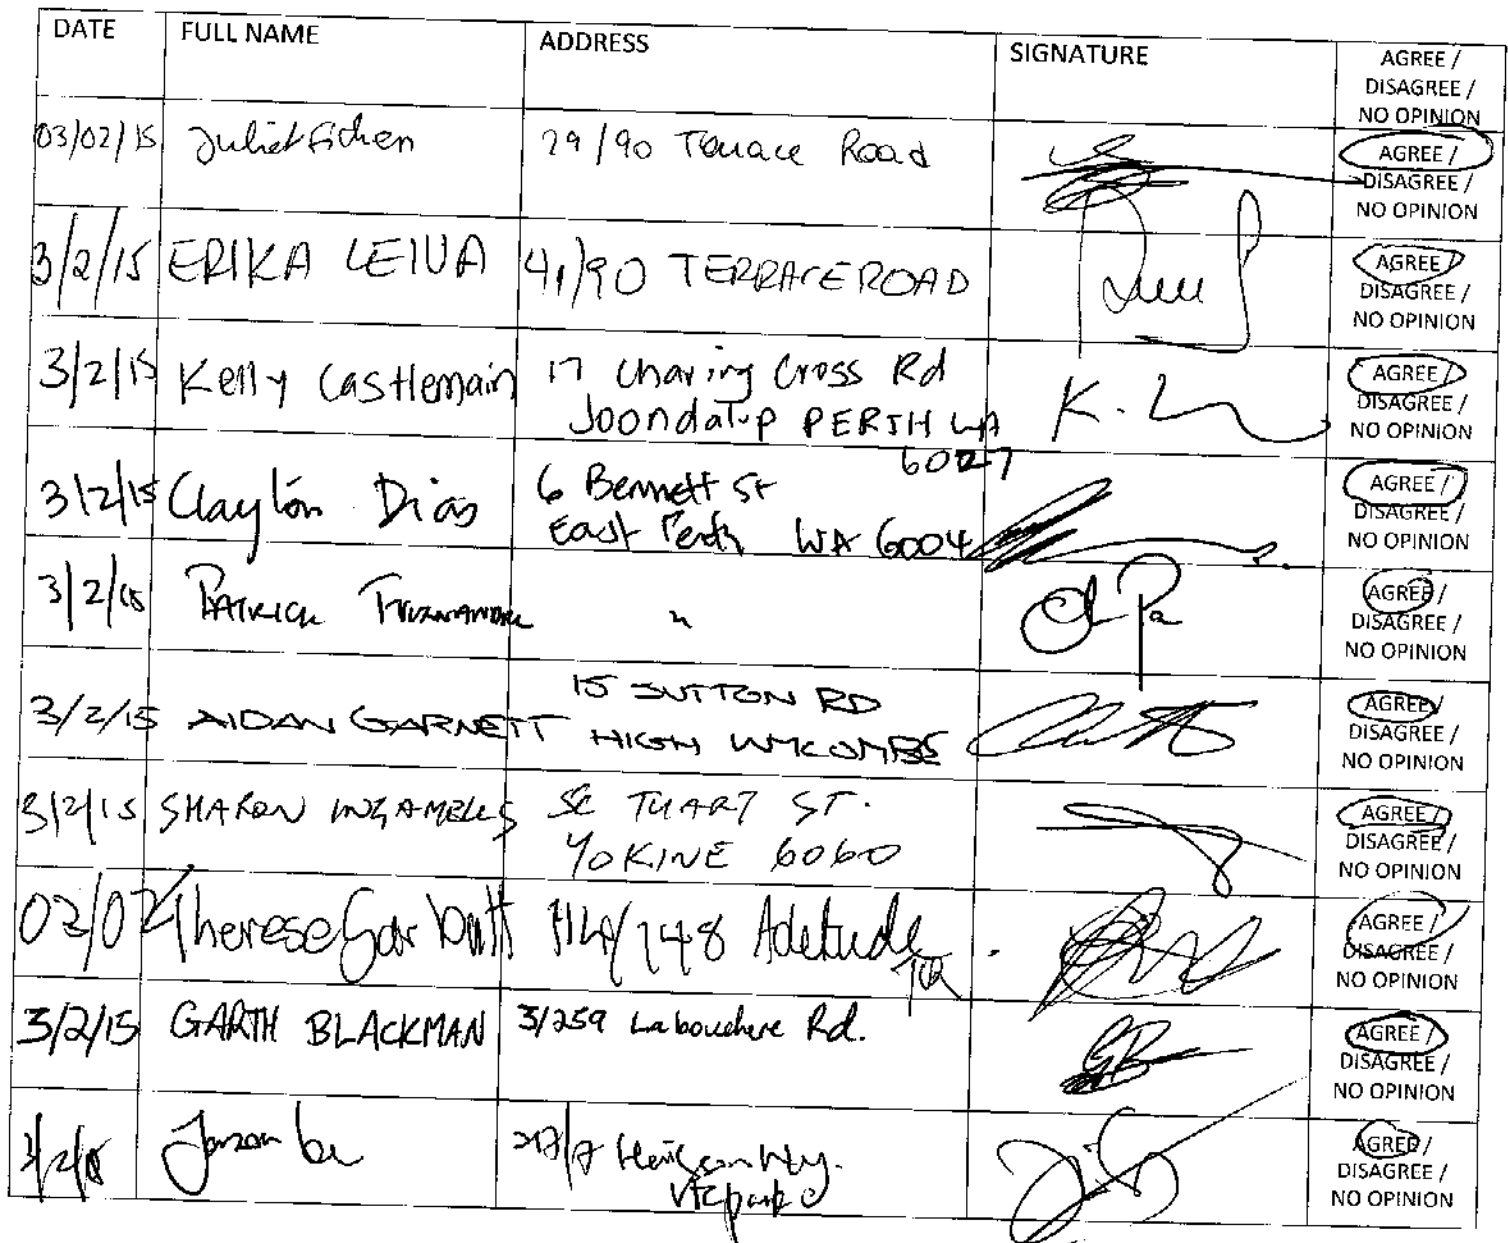 DATE FULL NAME ADDRESS SIGNATURE AGREE /
DISAGREE /
NO OPINION
03/02/15 Juliet 29/90 Terrace Road AGREE /
DISAGREE /
NO OPINION
3/2/15 ERIKA LEIVA 41/90 TERRACE ROAD AGREE /
DISAGREE /
NO OPINION
3/2/15 Kelly Castlemain 17 Charing Cross Rd K. AGREE /
Joondalup PERTH WA DISAGREE /
6027 NO OPINION
3/2/15 Clayton Dias 6 Bennett St AGREE /
East Perth WA 6004 DISAGREE /
NO OPINION
3/2/15 PATRICK " AGREE /
DISAGREE /
NO OPINION
3/2/15 AIDAN GARNETT 15 SUTTON RD AGREE /
HIGH WYCOMBE DISAGREE /
NO OPINION
3/2/15 SHARON INGAMELLS TUART ST. AGREE /
YOKINE 6060 DISAGREE /
NO OPINION
03/02/ Therese Garbutt /148 Adelaide AGREE /
Tce DISAGREE /
NO OPINION
3/2/15 GARTH BLACKMAN 3/259 Labouchere Rd. GB AGREE /
DISAGREE /
NO OPINION
3/2/15 AGREE /
Vic park DISAGREE /
NO OPINION